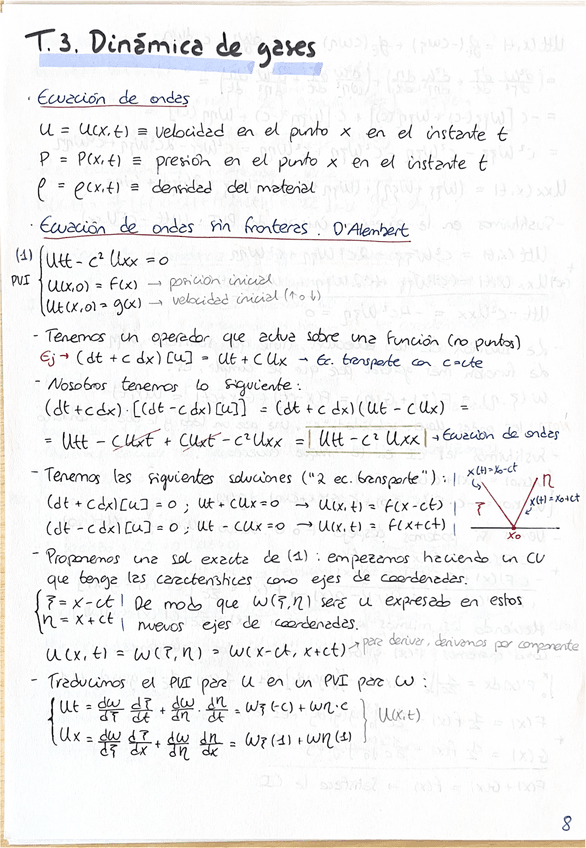 T.3. Dinámica de gases
· Ecuación de ondas
U = U(x,t) ≡ velocidad en el punto x en el instante t
P = P(x,t) ≡ presión en el punto x en el instante t
ρ = ρ(x,t) ≡ densidad del material
· Ecuación de ondas sin fronteras: D'Alembert
(1) PVI { Utt - c² Uxx = 0
U(x,0) = f(x) → posición inicial
Ut(x,0) = g(x) → velocidad inicial (↑ o ↓)
- Tenemos un operador que actua sobre una función (no puntos)
Ej → (dt + c dx)[u] = Ut + C Ux → Ec. transporte con c=cte
- Nosotros tenemos lo siguiente:
(dt + c dx)·[(dt - c dx)[u]] = (dt + c dx)(Ut - CUx) =
= Utt - CUxt + CUxt - c² Uxx = | Utt - c² Uxx | → Ecuación de ondas
- Tenemos las siguientes soluciones ("2 ec. transporte"):
(dt + c dx)[u] = 0 ; Ut + CUx = 0 → U(x,t) = f(x-ct)
(dt - c dx)[u] = 0 ; Ut - CUx = 0 → U(x,t) = f(x+ct)
x(t) = x₀-ct
ξ
η
x(t) = x₀+ct
x₀
- Proponemos una sol exacta de (1): empezamos haciendo un CV
que tenga las características como ejes de coordenadas.
{ ξ = x-ct | De modo que W(ξ,η) será u expresado en estos
η = x+ct | nuevos ejes de coordenadas.
U(x,t) = W(ξ,η) = W(x-ct, x+ct) → para derivar, derivamos por componente
- Traducimos el PVI para U en un PVI para W:
{ Ut = dw/dξ dξ/dt + dw/dη · dη/dt = Wξ(-c) + Wη·c
Ux = dw/dξ dξ/dx + dw/dη dη/dx = Wξ(1) + Wη(1) } U(x,t)
8